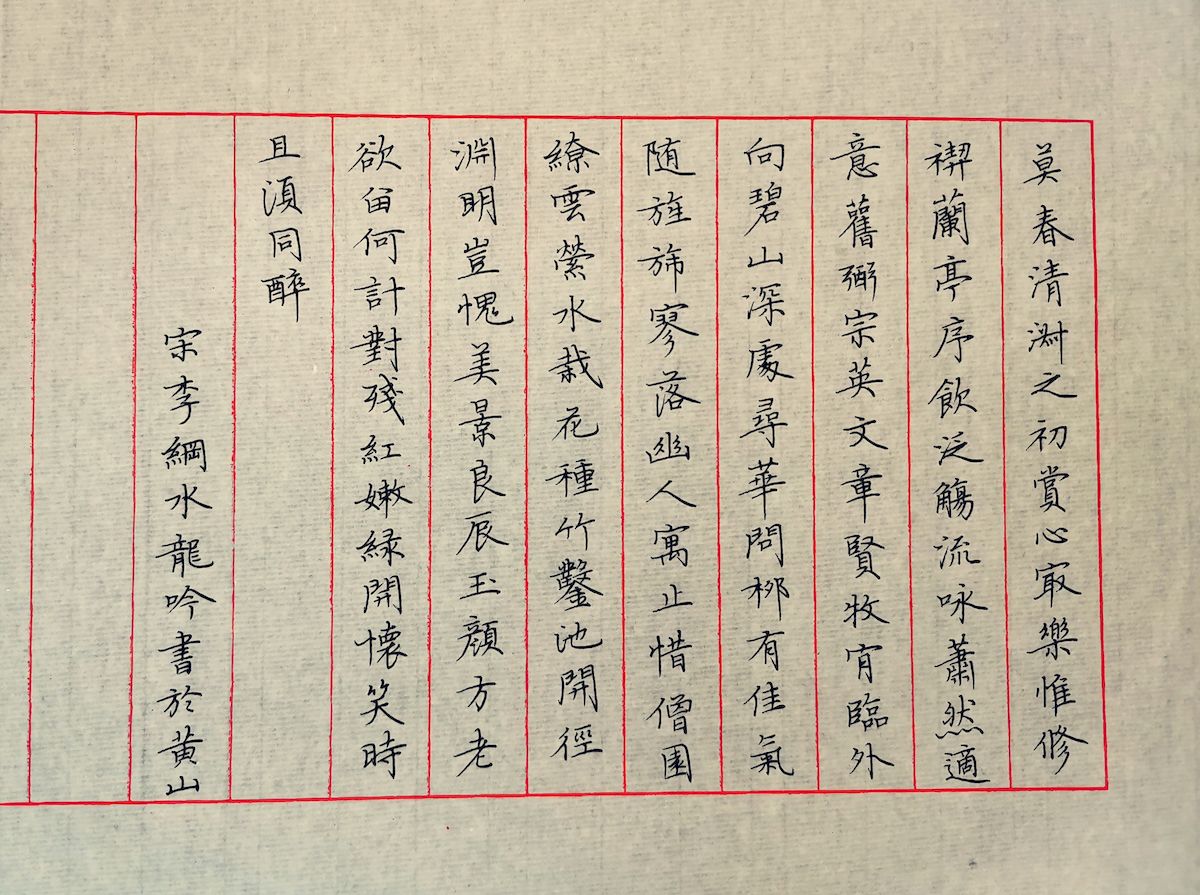 莫春清淑之初賞心㝡樂惟修
禊蘭亭序飲泛觴流咏蕭然適
意舊弼宗英文章賢牧肎臨外
向碧山深處尋華問栁有佳氣
随旌旆寥落幽人寓止惜僧園
繚雲縈水栽花種竹鑿池開徑
淵明豈愧美景良辰玉顏方老
欲留何計對殘紅嫩緑開懷笑時
且須同醉
宋李綱水龍吟書於黄山